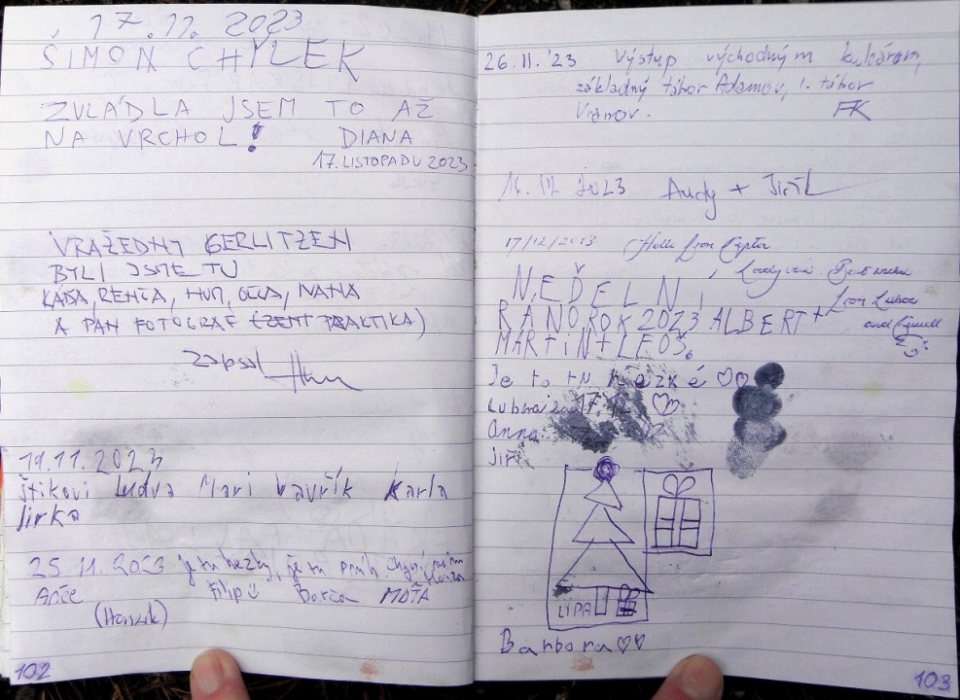 17.11. 2023
ŠIMON CHÝLEK
ZVLÁDLA JSEM TO AŽ
NA VRCHOL! DIANA
17. LISTOPADU 2023
VRAŽEDNÝ GERLITZEN
BYLI JSME TU
KÁĎA, RENČA, HUM, OLGA, NANA
A PAN FOTOGRAF (ZENIT PRAKTIKA)
Zapsal
19.11.2023
Štikovi Luďva Mari Vavřík Karla
Jirka
25 11. 2023 je mi hezky, je mi
Anče Filip Barča MOŤA
(Honzík)
102
26.11.'23 Výstup východným kuloárom,
základný tábor Adamov, 1. tábor
Vranov. FK
16. 12 2023 Andy + Jiří L
17/12/2023
NEDĚLNÍ
RÁNO ROK 2023 ALBERT +
MARTIN + LEOŠ.
Je to tu hezké ♡♡
17. 12 ♡♡
Anna
Jiří
LÍPA
Barbora ♡♡
103